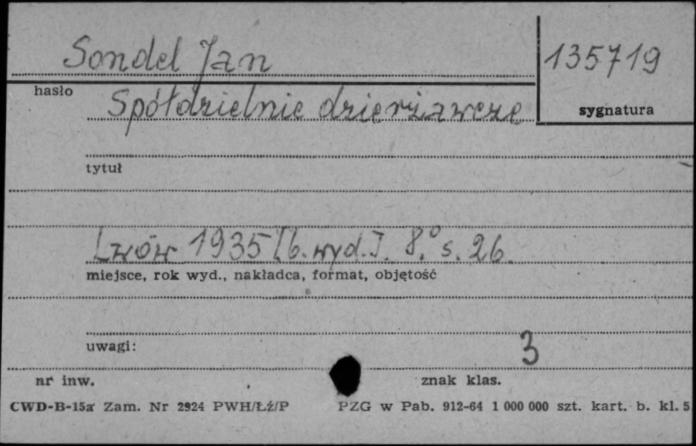 Sondel Jan
135719
hasło
Spółdzielnie dzierżawcze
sygnatura
tytuł
Lwów 1935 [b. wyd.]. 8.° s. 26.
miejsce, rok wyd., nakładca, format, objętość
uwagi:
3
nr inw.
znak klas.
CWD-B-15a Zam. Nr 2924 PWH/Łź/P PZG w Pab. 912-64 1 000 000 szt. kart. b. kl. 5